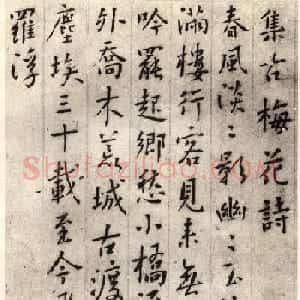 集古梅花詩
春風淡〻影幽〻玉
滿樓行客見来無
吟罷起鄉愁小橋
外喬木荒城古渡
塵埃三十載至今
羅浮